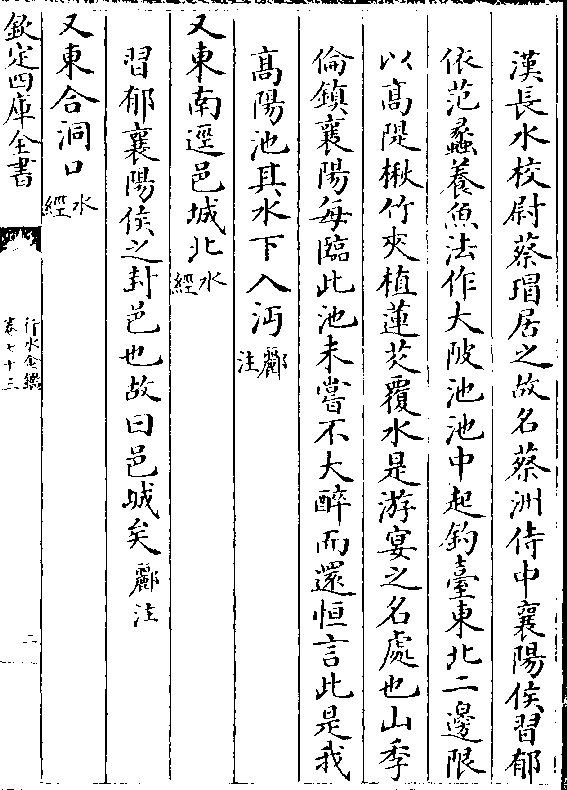 漢長水校尉蔡瑁居之故名蔡洲侍中襄陽侯習郁
依范蠡養魚法作大陂池池中起釣臺東北二邊限
以髙隄楸竹夾植蓮芡覆水是游宴之名處也山季
倫鎮襄陽每臨此池未嘗不大醉而還恒言此是我
髙陽池其水下入沔酈注
又東南逕邑城北水經
習郁襄陽侯之封邑也故曰邑城矣酈注
又東合洞口水經
欽定四庫全書
行水金鑑
卷七十三
二